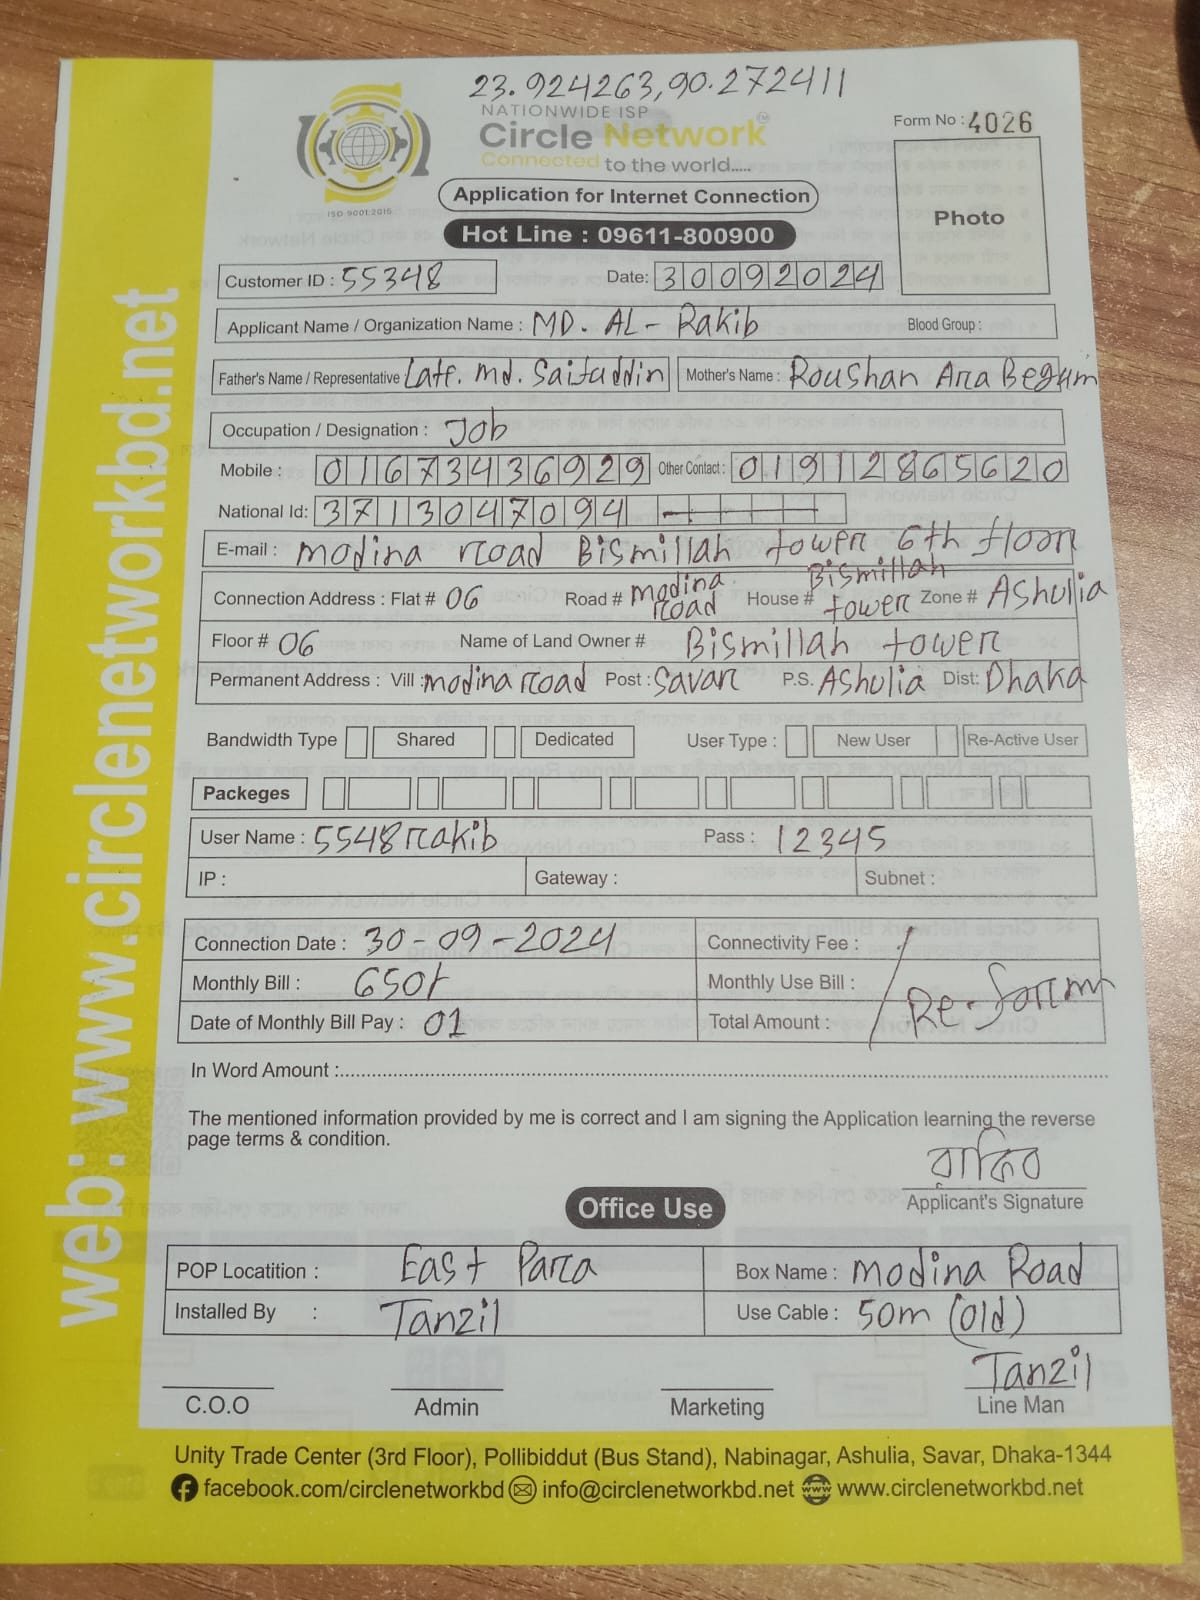 23.924263,90.272411
NATIONWIDE ISP
Circle Network
Connected to the world.....
ISO 9001:2015
Form No : 4026
Application for Internet Connection
Photo
Hot Line : 09611-800900
Customer ID : 55348 Date: 30092024
Applicant Name / Organization Name : MD. AL-Rakib Blood Group :
Father's Name / Representative Late. Md. Saifuddin Mother's Name : Roushan Ara Begum
Occupation / Designation : Job
Mobile : 01673436929 Other Contact : 01912865620
National Id: 3713047094
E-mail : modina road Bismillah tower 6th floor
Connection Address : Flat # 06 Road # modina road House # Bismillah tower Zone # Ashulia
Floor # 06 Name of Land Owner # Bismillah tower
Permanent Address : Vill : modina road Post : Savar P.S. Ashulia Dist: Dhaka
Bandwidth Type Shared Dedicated User Type : New User Re-Active User
Packeges
User Name : 5548rakib Pass : 12345
IP : Gateway : Subnet :
Connection Date : 30-09-2024 Connectivity Fee :
Monthly Bill : 650/- Monthly Use Bill :
Re-Form
Date of Monthly Bill Pay : 01 Total Amount :
In Word Amount :
The mentioned information provided by me is correct and I am signing the Application learning the reverse
page terms & condition.
রাকিব
Applicant's Signature
Office Use
POP Locatition : East Para Box Name : Modina Road
Installed By : Tanzil Use Cable : 50m (old)
Tanzil
C.O.O Admin Marketing Line Man
Unity Trade Center (3rd Floor), Pollibiddut (Bus Stand), Nabinagar, Ashulia, Savar, Dhaka-1344
facebook.com/circlenetworkbd info@circlenetworkbd.net www.circlenetworkbd.net
web: www.circlenetworkbd.net